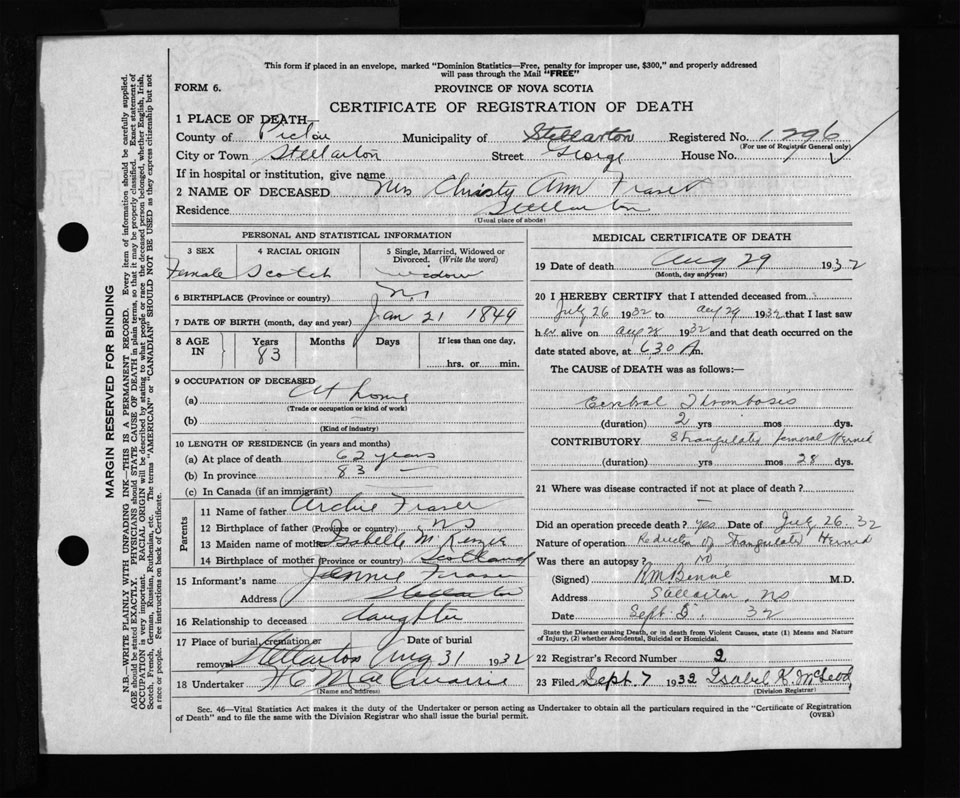 This form if placed in an envelope, marked "Dominion Statistics—Free, penalty for improper use, $300," and properly addressed
will pass through the Mail "FREE"
FORM 6.
PROVINCE OF NOVA SCOTIA
CERTIFICATE OF REGISTRATION OF DEATH
1 PLACE OF DEATH—
County of Pictou Municipality of Stellarton Registered No. 1296
(For use of Registrar General only)
City or Town Stellarton Street George House No.
If in hospital or institution, give name
2 NAME OF DECEASED Mrs Christy Ann Fraser
Residence Stellarton
(Usual place of abode)
PERSONAL AND STATISTICAL INFORMATION
3 SEX 4 RACIAL ORIGIN 5 Single, Married, Widowed or
Divorced. (Write the word)
Female Scotch widow
6 BIRTHPLACE (Province or country) N.S
7 DATE OF BIRTH (month, day and year) Jan 21 1849
8 AGE IN Years Months Days If less than one day,
83 hrs. or min.
9 OCCUPATION OF DECEASED
(a) At home
(Trade or occupation or kind of work)
(b)
(Kind of industry)
10 LENGTH OF RESIDENCE (in years and months)
(a) At place of death 62 years
(b) In province 83 —
(c) In Canada (if an immigrant)
Parents
11 Name of father Archie Fraser
12 Birthplace of father (Province or country) N S
13 Maiden name of mother Isabelle McKenzie
14 Birthplace of mother (Province or country) Scotland
15 Informant's name Jennie Fraser
Address Stellarton
16 Relationship to deceased daughter
17 Place of burial, cremation or Date of burial
removal Stellarton Aug 31 1932
18 Undertaker H C MacQuarrie
(Name and address)
MEDICAL CERTIFICATE OF DEATH
19 Date of death Aug 29 1932
(Month, day and year)
20 I HEREBY CERTIFY that I attended deceased from
July 26 1932 to Aug 29 1932 that I last saw
her alive on Aug 28 1932 and that death occurred on the
date stated above, at 6.30 A m.
The CAUSE of DEATH was as follows:—
Cerebral Thrombosis
(duration) 2 yrs mos dys.
CONTRIBUTORY Strangulated femoral Hernia
(duration) yrs mos 28 dys.
21 Where was disease contracted if not at place of death?
—
Did an operation precede death? yes Date of July 26. 32
Nature of operation. Reduction of Strangulated Hernia
Was there an autopsy? no
(Signed) R.M. Bennie M.D.
Address Stellarton, NS
Date Sept 5. 32
State the Disease causing Death, or in death from Violent Causes, state (1) Means and Nature
of Injury, (2) whether Accidental, Suicidal or Homicidal.
22 Registrar's Record Number 2
23 Filed Sept. 7 1932 Isabel K. McLeod
(Division Registrar)
Sec. 46—Vital Statistics Act makes it the duty of the Undertaker or person acting as Undertaker to obtain all the particulars required in the "Certificate of Registration
of Death" and to file the same with the Division Registrar who shall issue the burial permit. (OVER)
MARGIN RESERVED FOR BINDING
N.B.—WRITE PLAINLY WITH UNFADING INK—THIS IS A PERMANENT RECORD. Every item of information should be carefully supplied.
AGE should be stated EXACTLY. PHYSICIANS should STATE CAUSE OF DEATH in plain terms, so that it may be properly classified. Exact statement of
OCCUPATION is very important. RACIAL ORIGIN will be described by stating to what people or race the deceased person belonged, whether English, Irish,
Scotch, French, German, Russian, Ruthenian, etc. The terms "AMERICAN" or "CANADIAN" SHOULD NOT BE USED as they express citizenship but not
a race or people. See instructions on back of Certificate.